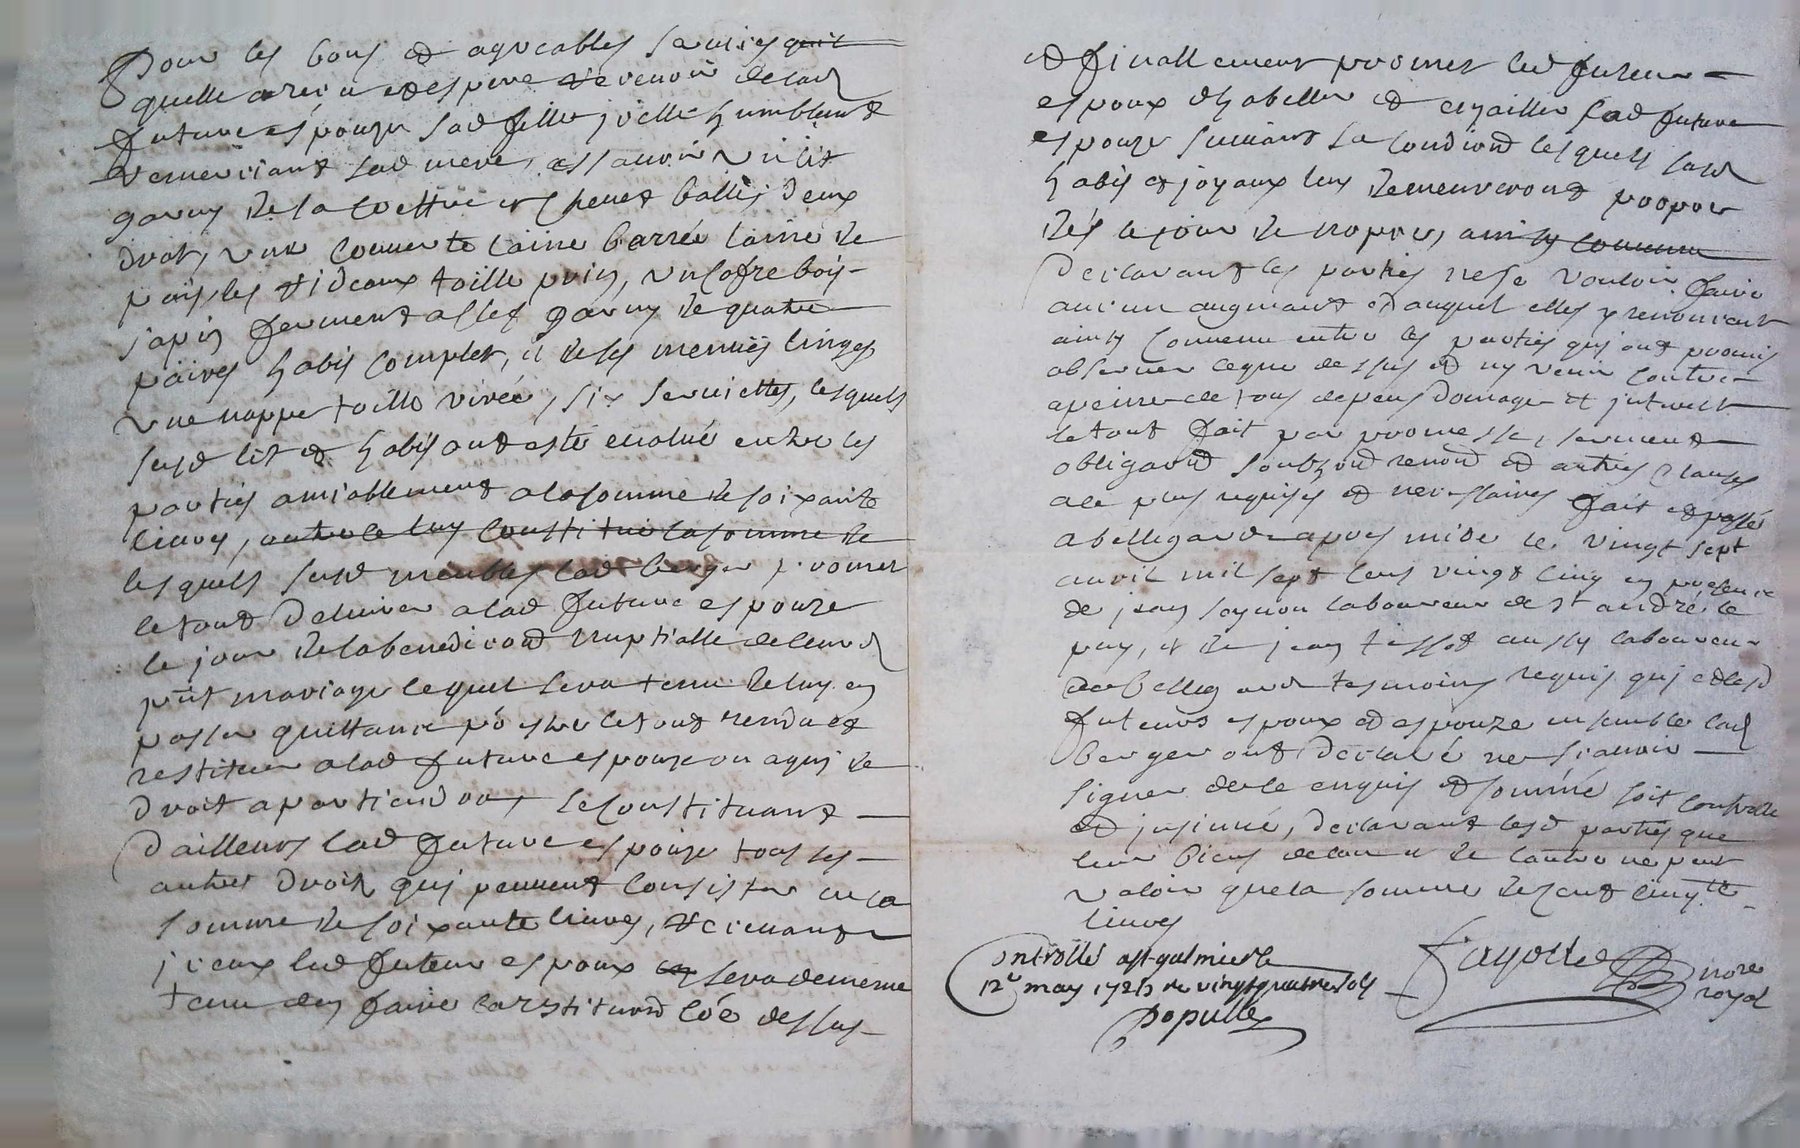 Pour les bons et agreables services quil
quelle a reçu et espere recevoir de lad
future espouze sad fille icelle humblemt
remerciant sad mere, assavoir un lit
garny de sa coettre et chevet balles deux
draps, une couverte laine barrée laine de
païs, les rideaux toille prin, un cofre bois
sapin ferment a clef garny de quatre
paires habis complet, et de ses menues linges
une nappe toille virée, six serviettes, lesquels
susd lit et habis ont esté evalué entre les
parties amiablement a la somme de soixante
livres, outre ce luy constitue la somme de
lesquels susd meubles lad berger promet
le tout delivrer a lad future espouze
le jour de la benediond nuptialle de leurd
pnt mariage lequel sera tenu de luy en
passer quittance pr estre le tout rendu et
restituer a lad future espouze ou a qui de
droit apartiendra, se constituant
d'ailleurs lad future espouze tous ses
autres droits qui peuvent consister en la
somme de soixante livres, recevant
iceux led futeur espoux sera de meme
tenu den faire la restituond cōe dessus
et finallement promet led futeur
espoux dhabeller et enjoailler sad future
espouze suivant sa condiond lesquels susd
habis et joyaux luy demeureront propre
dés le jour de nopces, ainsy convenu
declarant les parties ne se vouloir faire
aucun augmant et auquel elles y renoncent
ainsy convenu entre les parties qui ont promis
observer ce que dessus et ny venir contre
a peine de tous depens domage et interest
le tout fait par promesse, serment
obligaond soubzond renond et autres clauses
a ce plus requises et necessaires fait et passé
a bellegarde apres midi le vingt sept
avril mil sept cens vingt cinq en presence
de jean soynon laboureur de st andré le
puy, et de jean tissot aussy laboureur
de bellegarde tesmoins requis qui et lesd
futeurs espoux et espouze ensemble lad
berger ont declaré ne sçavoir
signer de ce enquis et sommé soit controllé
et insinué, declarant lesd parties que
leur biens de lun et de lautre ne peut
valoir que la somme de cent cinqte
livres
Controllé a st galmier le
12e may 1725 re vingt quatre sols
Populle
Fayolle
nore
royal